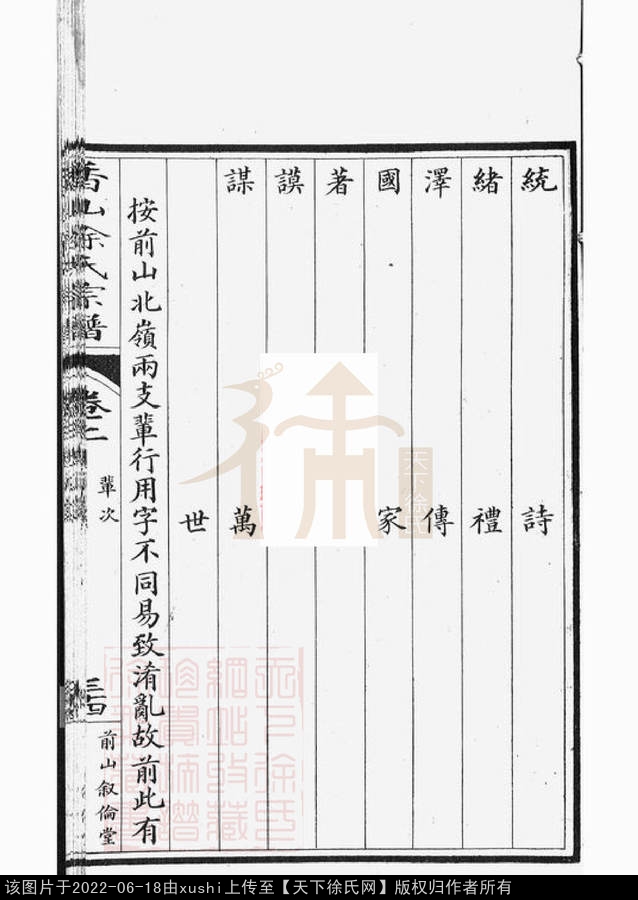 統　詩
緒　禮
澤　傳
國　家
著
謨
謀　萬
世
按前山北嶺兩支輩行用字不同易致淆亂故前此有
香山徐氏宗譜
卷二
輩次
三四
前山敘倫堂
徐
天下徐氏
该图片于2022-06-18由xushi上传至【天下徐氏网】版权归作者所有